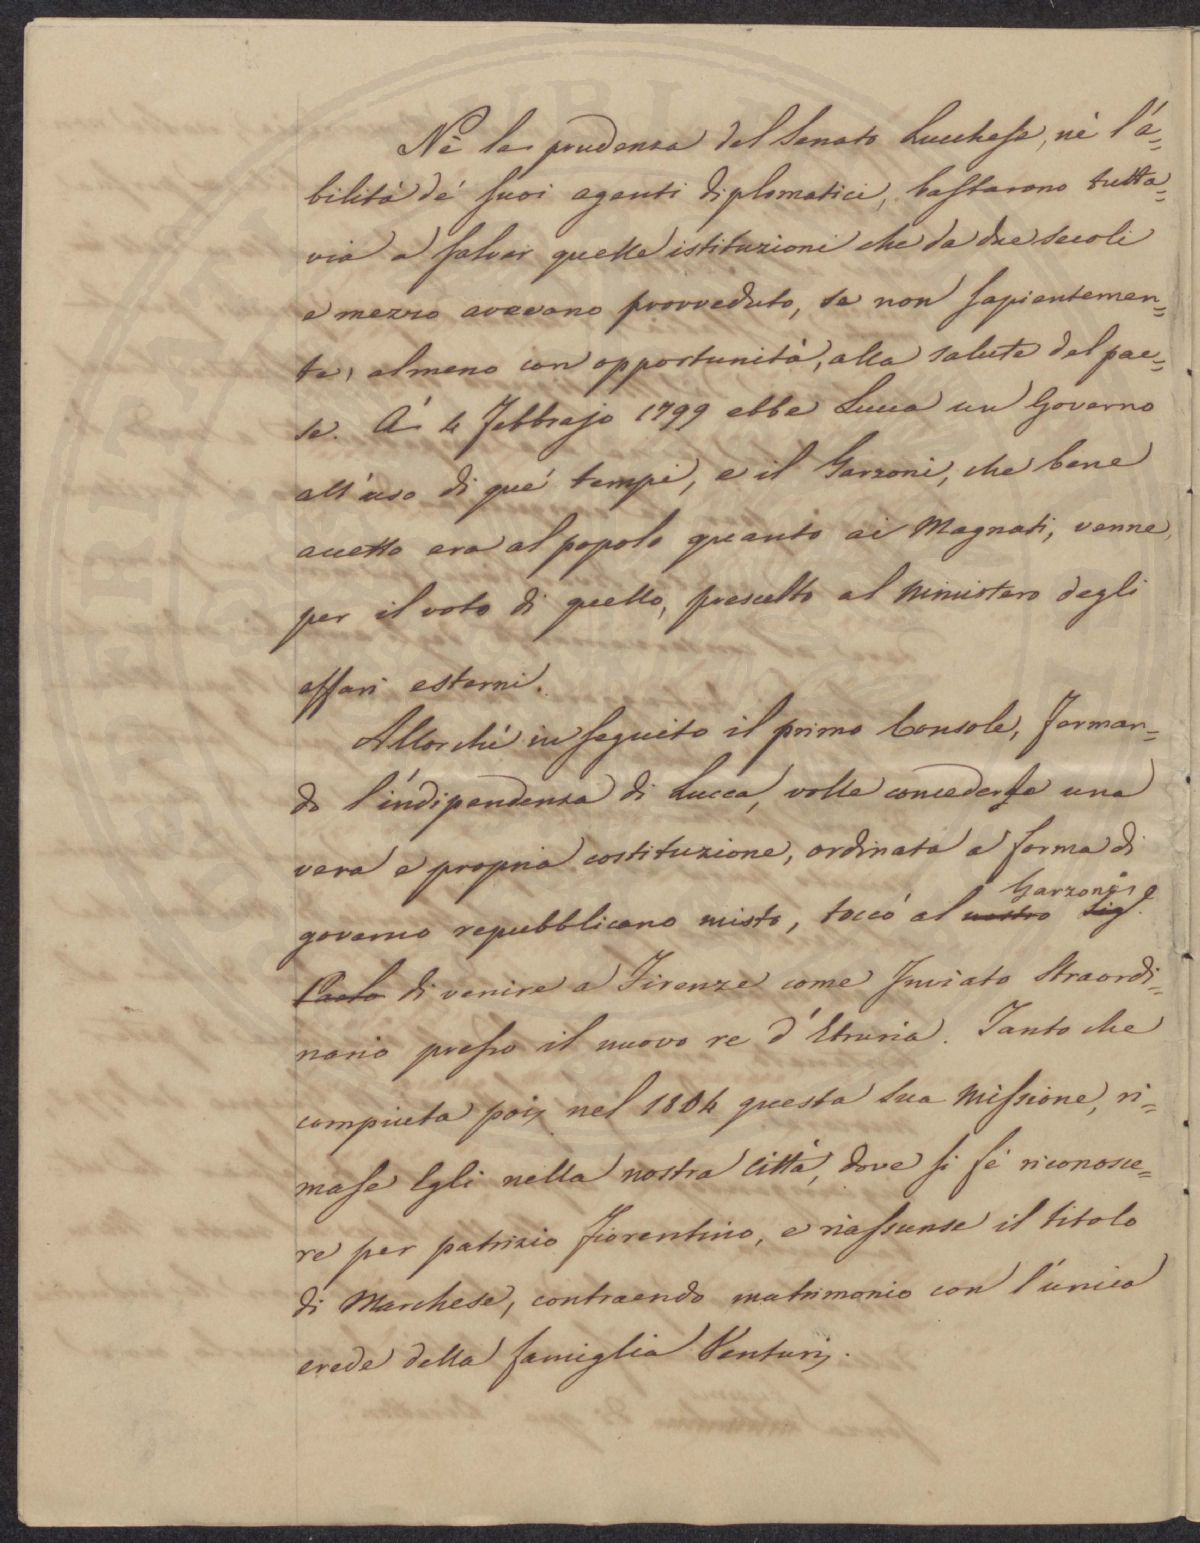 Nè la prudenza del Senato Lucchese, nè l'a=
bilità de' suoi agenti diplomatici, bastarono tutta=
via a salvar quelle istituzioni che da due secoli
e mezzo avevano provveduto, se non sapientemen=
te, almeno con opportunità, alla salute del pae=
se. A' 4 Febbrajo 1799 ebbe Lucca un Governo
all'uso di que' tempi, e il Garzoni, che bene
accetto era al popolo quanto ai Magnati, venne,
per il voto di quello, prescelto al Ministero degli
affari esterni.
Allorchè in seguito il primo Console, fermando=
do l'indipendenza di Lucca, volle concederle una
vera e propria costituzione, ordinata a forma di
governo repubblicano misto, toccò al nostro Sig.e
Garzoni
Paolo di venire a Firenze come Inviato Straordi=
nario presso il nuovo re d'Etruria. Tanto che
compiuta poi, nel 1804 questa sua Missione, ri=
mase Egli nella nostra Città, dove si fé riconosce=
re per patrizio fiorentino, e riassunse il titolo
di Marchese, contraendo matrimonio con l'unica
erede della famiglia Venturi.